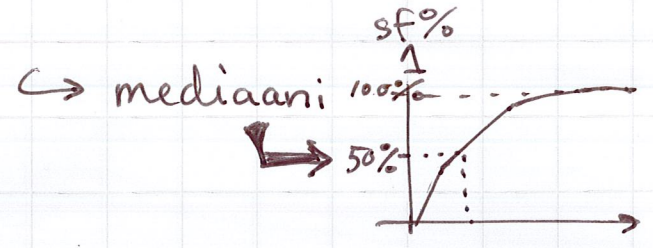 sf%
↪ mediaani 100%
50%